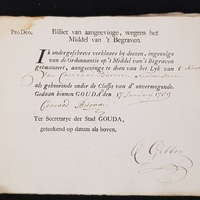 Pro Deo.
Billiet van aangeevinge, wegens het
Middel van 't Begraven.
IK ondergeschreve verklaare by deezen, ingevolge
van de Ordonnantie op 't Middel van 't Begraven
geëmaneert, aangeevinge te doen van het Lyk van 't
Van Coenraad
als gehoorende onder de Classis van d' onvermogende.
Gedaan binnen GOUDA den 17 January 17
Coenraad
Ter Secretarye der Stad GOUDA,
geteekend op datum als boven.